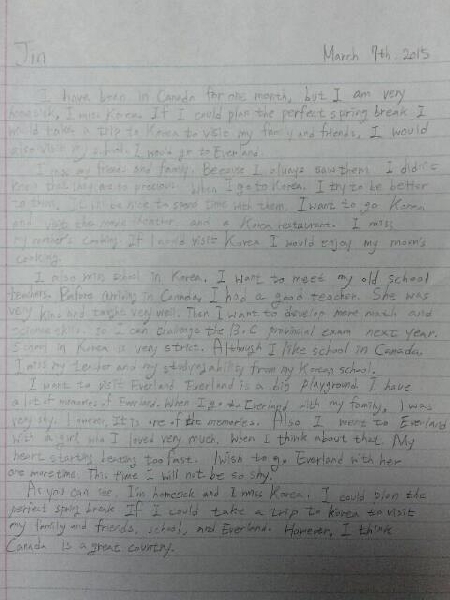 Jin
March 7th. 2015
I have been in Canada for one month, but I am very
homesick, I miss Korea. If I could plan the perfect spring break I
would take a trip to Korea to visit my family and friends, I would
also visit my school. I would go to Everland.
I miss my friends and family. Because I always saw them I didn't
know they were so precious. When I go to Korea. I try to be better
to them. It will be nice to spend time with them. I want to go Korea
and visit the movie theater and a Korean restaurant. I miss
my mother's cooking. If I could visit Korea I would enjoy my mom's
cooking.
I also miss school in Korea. I want to meet my old school
teachers. Before arriving in Canada, I had a good teacher. She was
very kind, and taught very well. Then I want to develop more math and
so I can challenge the B.C provincial exam next year.
in Korea is very strict. Although I like school in Canada,
I miss my teacher and my studying ability from my Korean school.
I want to visit Everland Everland is a big playground I have
a lot of memories of Everland. When I go to Everland with my family, I was
very shy. It is one of the memories. Also I went to Everland
with a girl who I loved very much. When I think about that. My
heart starting beating too fast. I wish to go Everland with her
one more time. This time I will not be so shy.
As you can see. I'm homesick and I miss Korea. I could plan the
perfect spring break If I could take a trip to korea to visit
my family and friends, school, and Everland. However, I think
Canada is a great country.